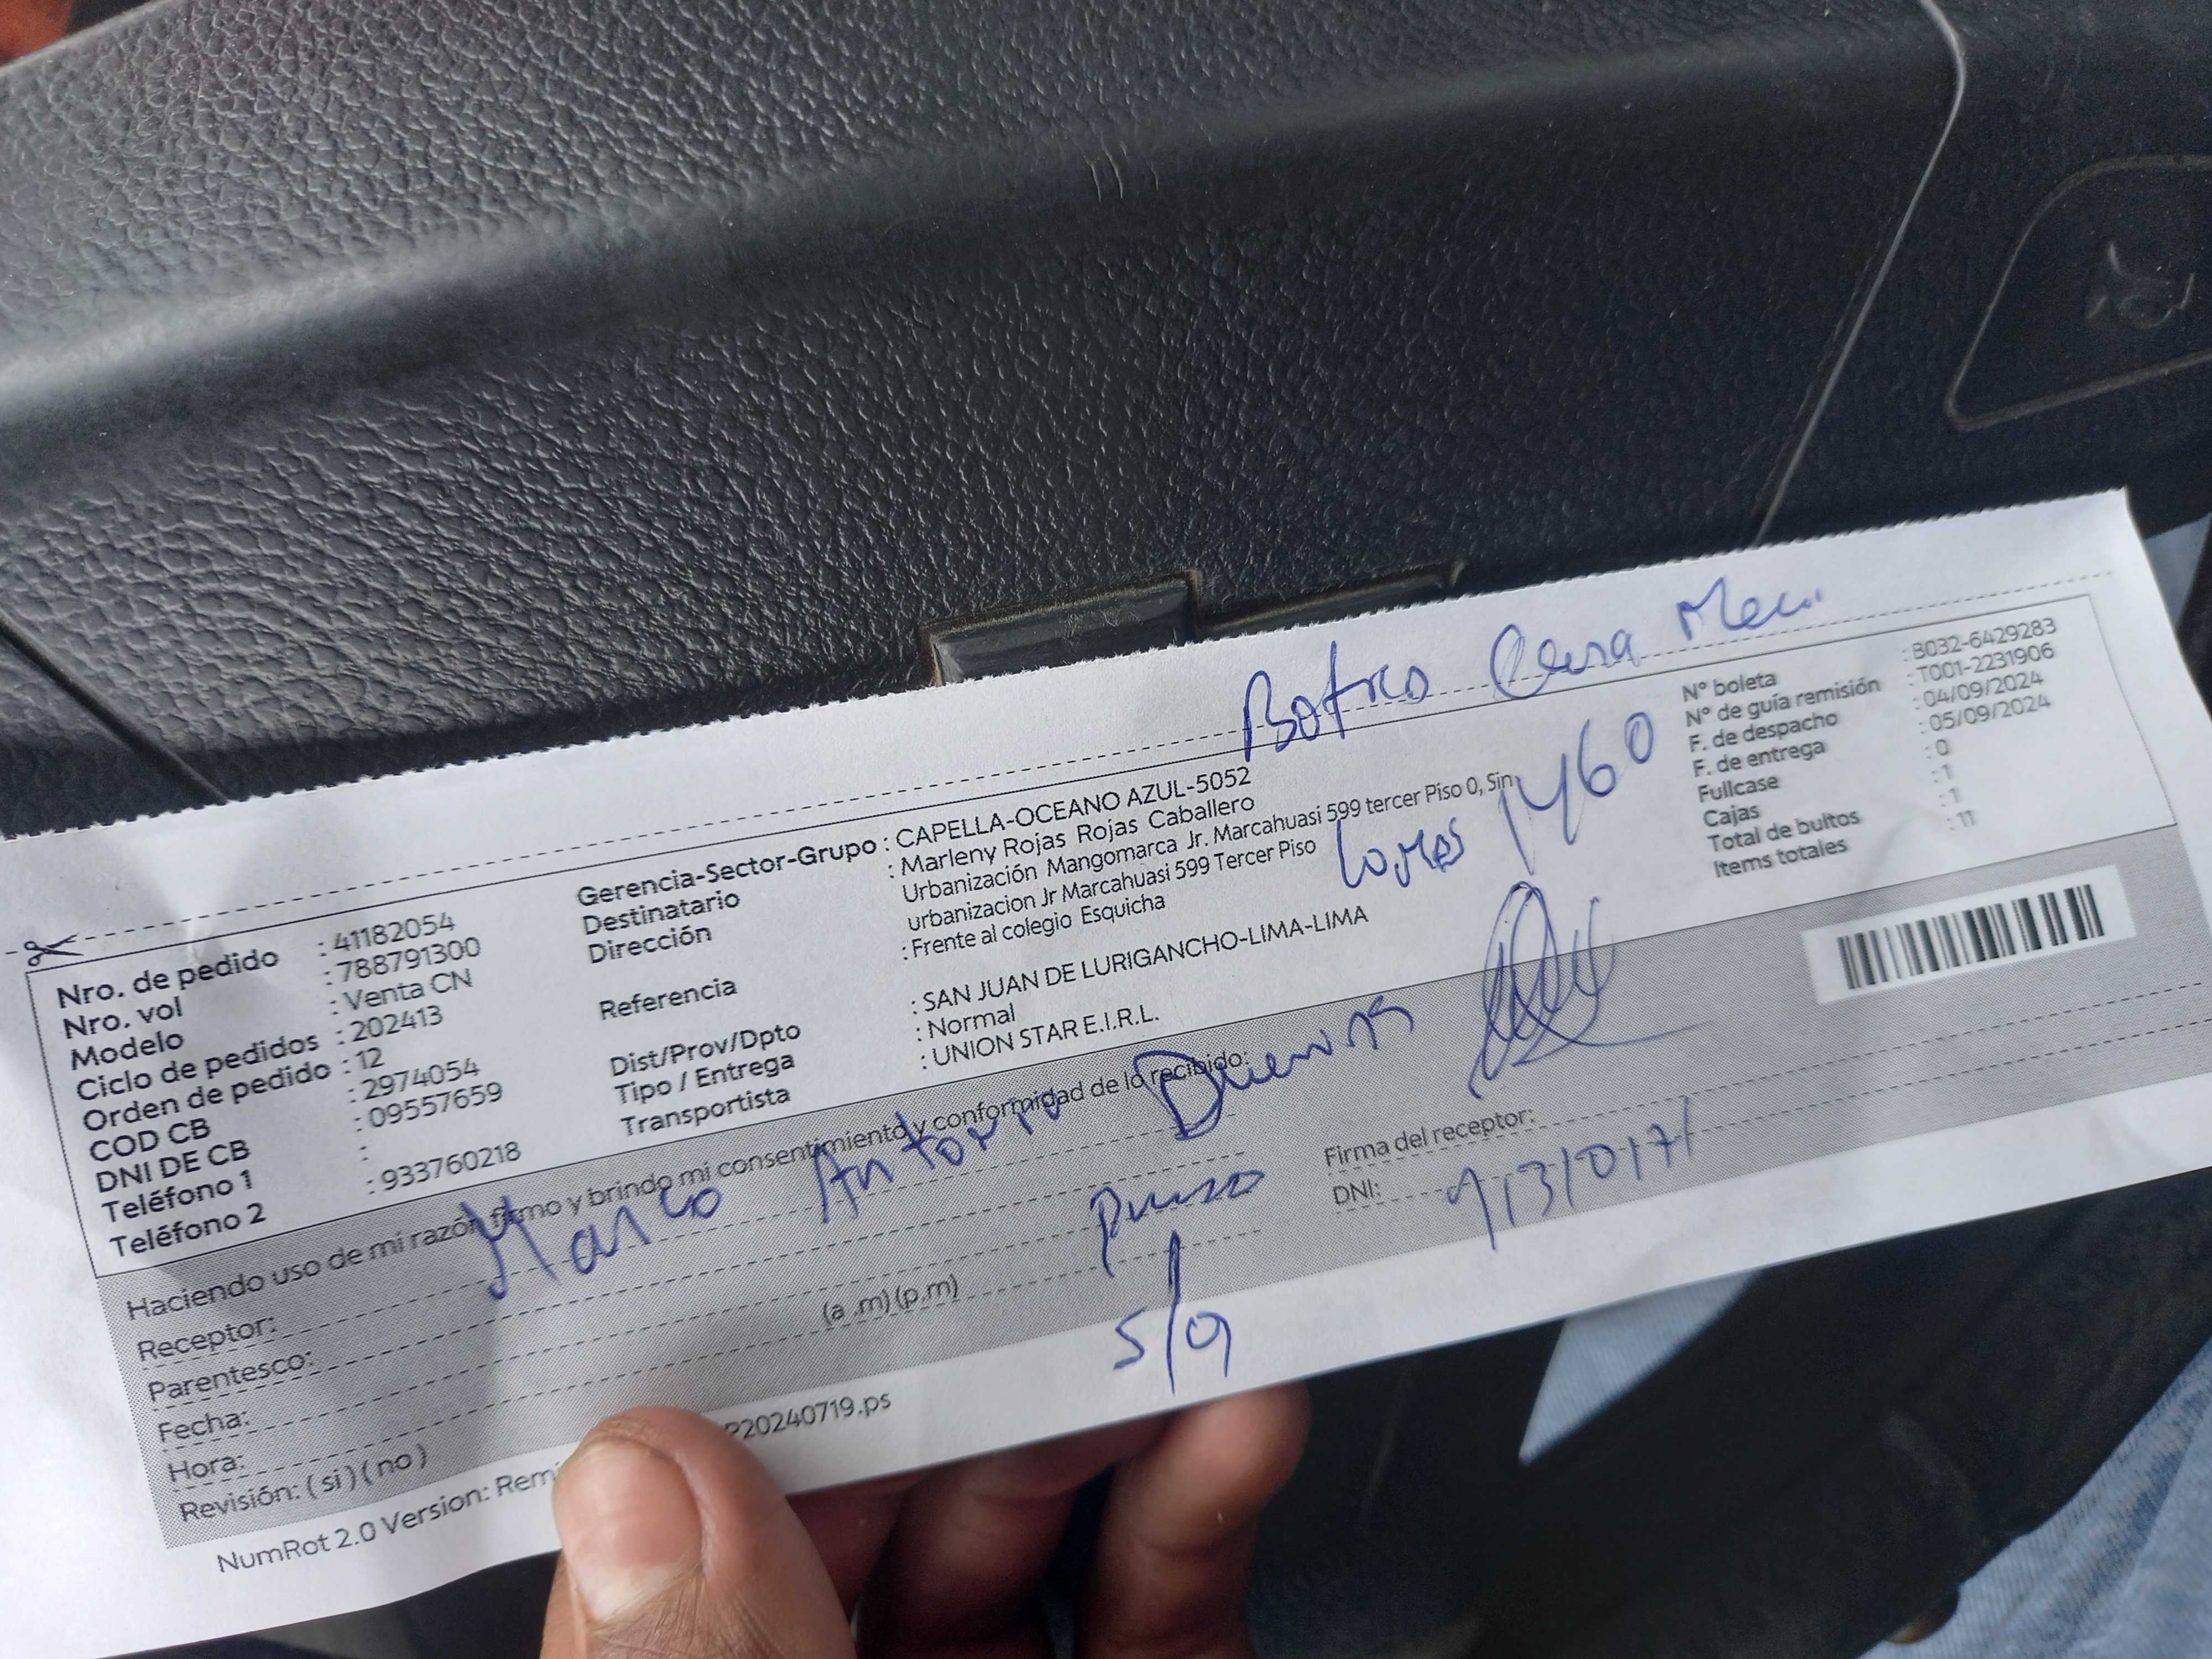 Nro. de pedido : 41182054
Nro. vol : 788791300
Modelo : Venta CN
Ciclo de pedidos : 202413
Orden de pedido : 12
COD CB : 2974054
DNI DE CB : 09557659
Teléfono 1 :
Teléfono 2 : 933760218
Gerencia-Sector-Grupo : CAPELLA-OCEANO AZUL-5052
Destinatario : Marleny Rojas Rojas Caballero
Dirección Urbanización Mangomarca Jr. Marcahuasi 599 tercer Piso 0, Sin
urbanizacion Jr Marcahuasi 599 Tercer Piso
Referencia : Frente al colegio Esquicha
Dist/Prov/Dpto : SAN JUAN DE LURIGANCHO-LIMA-LIMA
Tipo / Entrega : Normal
Transportista : UNION STAR E.I.R.L.
1460
N° boleta : B032-6429283
N° de guía remisión : T001-2231906
F. de despacho : 04/09/2024
F. de entrega : 05/09/2024
Fullcase : 0
Cajas : 1
Total de bultos : 1
Items totales : 11
Haciendo uso de mi razón firmo y brindo mi consentimiento y conformidad de lo recibido:
Receptor: Marco Antonio
Parentesco:
Fecha: 5/9
Hora: (a .m) (p.m)
Revisión: ( si ) ( no )
Firma del receptor:
DNI:
NumRot 2.0 Version: Remi
P20240719.ps